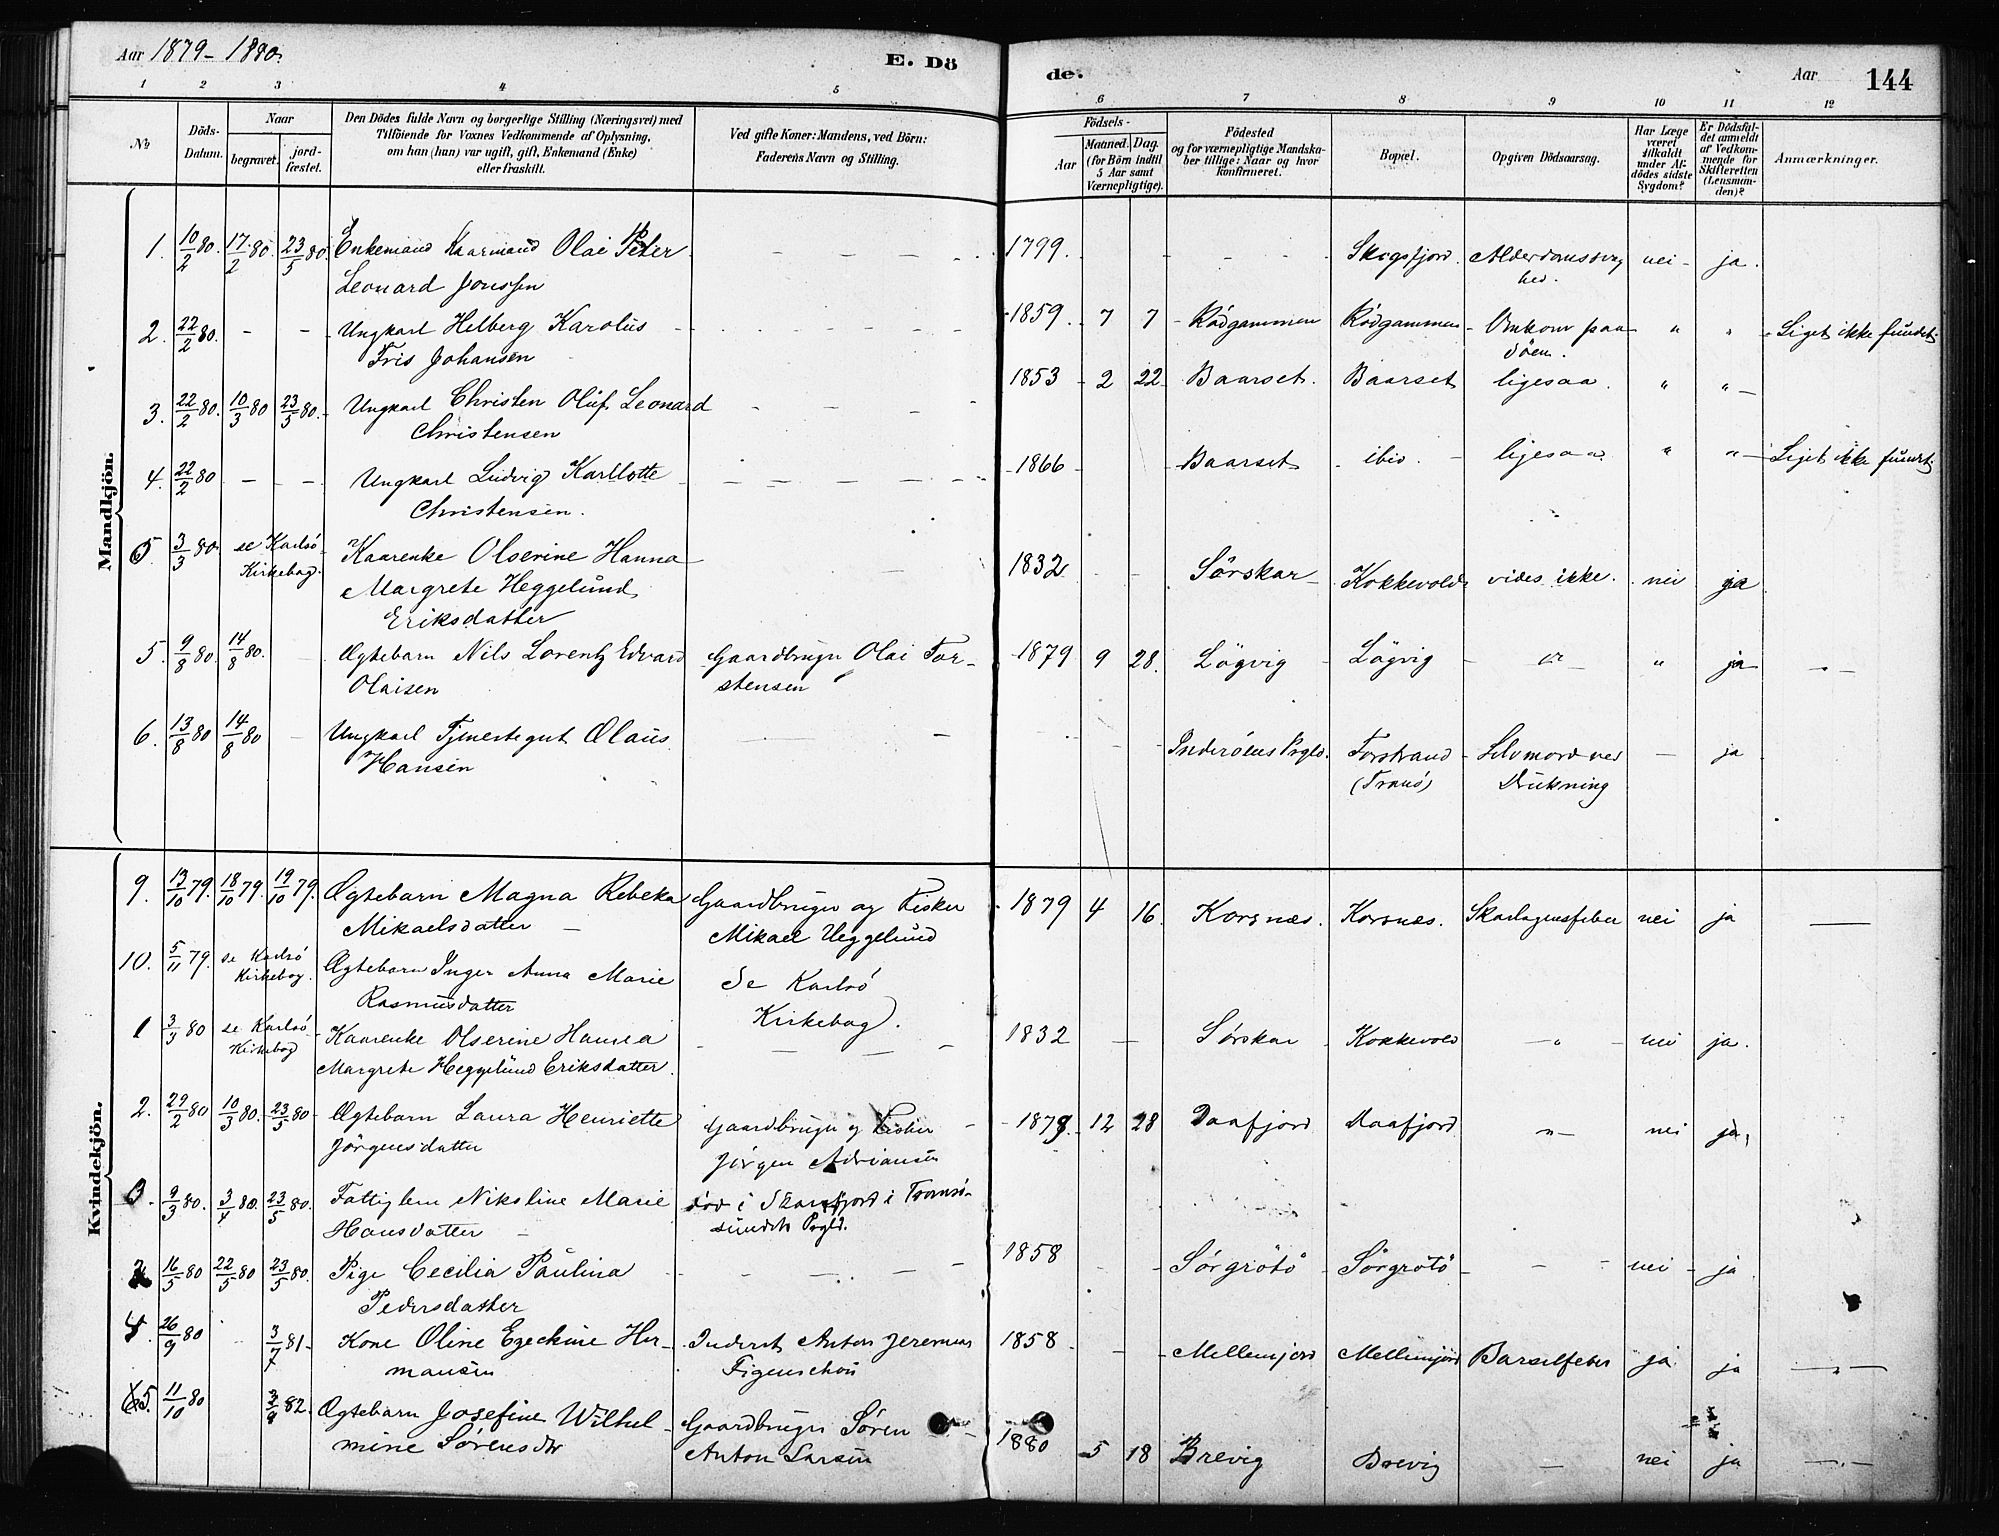 Aar 1879-1880. E. Dö de. Aar 144
1 2 3 4 5 6 7 8 9 10 11 12
No
Döds-Datum.
Naar
begravet. jordfæstet.
Den Dödes fulde Navn og borgerlige Stilling (Næringsvei) med
Tilföiende for Voxnes Vedkommende af Oplysning,
om han (hun) var ugift, gift, Enkemand (Enke)
eller fraskilt.
Ved gifte Koner: Mandens, ved Börn:
Faderens Navn og Stilling.
Födsels-
Aar Maaned. Dag.
(for Börn indtil
5 Aar samt
Værnepligtige).
Födested
og for værnepligtige Mandska-
ber tillige: Naar og hvor
konfirmeret.
Bopæl.
Opgiven Dödsaarsag.
Har Læge
været
tilkaldt
under Af-
dödes sidste
Sygdom?
Er Dödsfal-
det anmeldt
af Vedkom-
mende for
Skifteretten
(Lensman-
den)?
Anmærkninger.
Mandkjön.
1. 10/2 80. 17/2 80. 23/5 80. Enkemand Kaarmand Olai Peter - - - - 1799. - - - Skogsfjord. Alderdomssvag nei - ja.
Leonard Jonssen hed.
2. 22/2 80. - - Ungkarl Helberg Karolus - - - - 1859. 7 7 Rödgammen Rödgammen Omkom paa " " Liget ikke fundet.
Fris Johansen Söen.
3. 22/2 80. 10/3 80 23/5 80. Ungkarl Christen Oluf Leonard - - - 1853 - 2 22 Baarset. Baarset ligesaa. " "
Christensen
4. 22/2 80 - - Ungkarl Ludvig Karllotte - - - - 1866 - Baarset ibid. ligesaa. " " Liget ikke fundet
Christensen.
5 3/3 80 se Karlsö Kaarenke Olserine Hanna - - 1832 - - Sörskar Kokkevold vides ikke. nei ja
Kirkebog. Margrete Heggelund
Eriksdatter
5. 9/8 80. 14/8 80. Ægtebarn Nils Lorentz Edvard Gaardbruger Olai Tor- 1879 9 28. Lögvig Lögvig " " ja
Olaisen stensen
6. 13/8 80 14/8 80 Ungkarl Tjenestegut Olaus - - - Inderöens Prgld. Forstrand Selvmord ved - ja
Hansen (Tranö) Drukning
Kvindekjön.
9. 13/10 79. 18/10 79. 19/10 79. Ægtebarn Magna Rebeka Gaardbruger og Fisker 1879 4 16. Korsnæs. Korsnæs. Skarlagensfeber nei ja
Mikaelsdatter Mikael Heggelund
10. 5/11 79. se Karlsö Ægtebarn Inger Anna Marie Se Karlsö
Kirkebog. Rasmusdatter Kirkebog.
1 3/3 80 se Karlsö Kaarenke Olserine Hanna - - - 1832 - Sörskar Kokkevold " nei ja.
Kirkebog Margrete Heggelund Eriksdatter.
2. 29/2 80 10/3 80. 23/5 80 Ægtebarn Laura Henriette Gaardbruger og Fisker 1879. 12 28 Daafjord Daafjord " nei ja,
Jörgensdatter Jörgen Adriansen
3. 9/3 80. 3/4 80. 23/5 80. Fattiglem Nikoline Marie död i i Tromsö-
Hansdatter sundets Prgld.
16/5 80 22/5 80 23/5 80. Pige Cecilia Paulina - - - 1858 - - Sörgrötö Sörgrötö - - nei - ja
Pedersdatter
4. 26/9 80 3/7 81 Kone Oline Ezechine Her- Inderst Anton Jeremias 1858 - - Mellemjord Mellemjord Barselfeber ja ja
mansen Figenschou
5. 11/10 80 82. Ægtebarn Josefine Wilhel Gaardbruger Sören 1880 5 18 Brevig Brevig - nei ja
mine Sörensdtr Anton Larsen